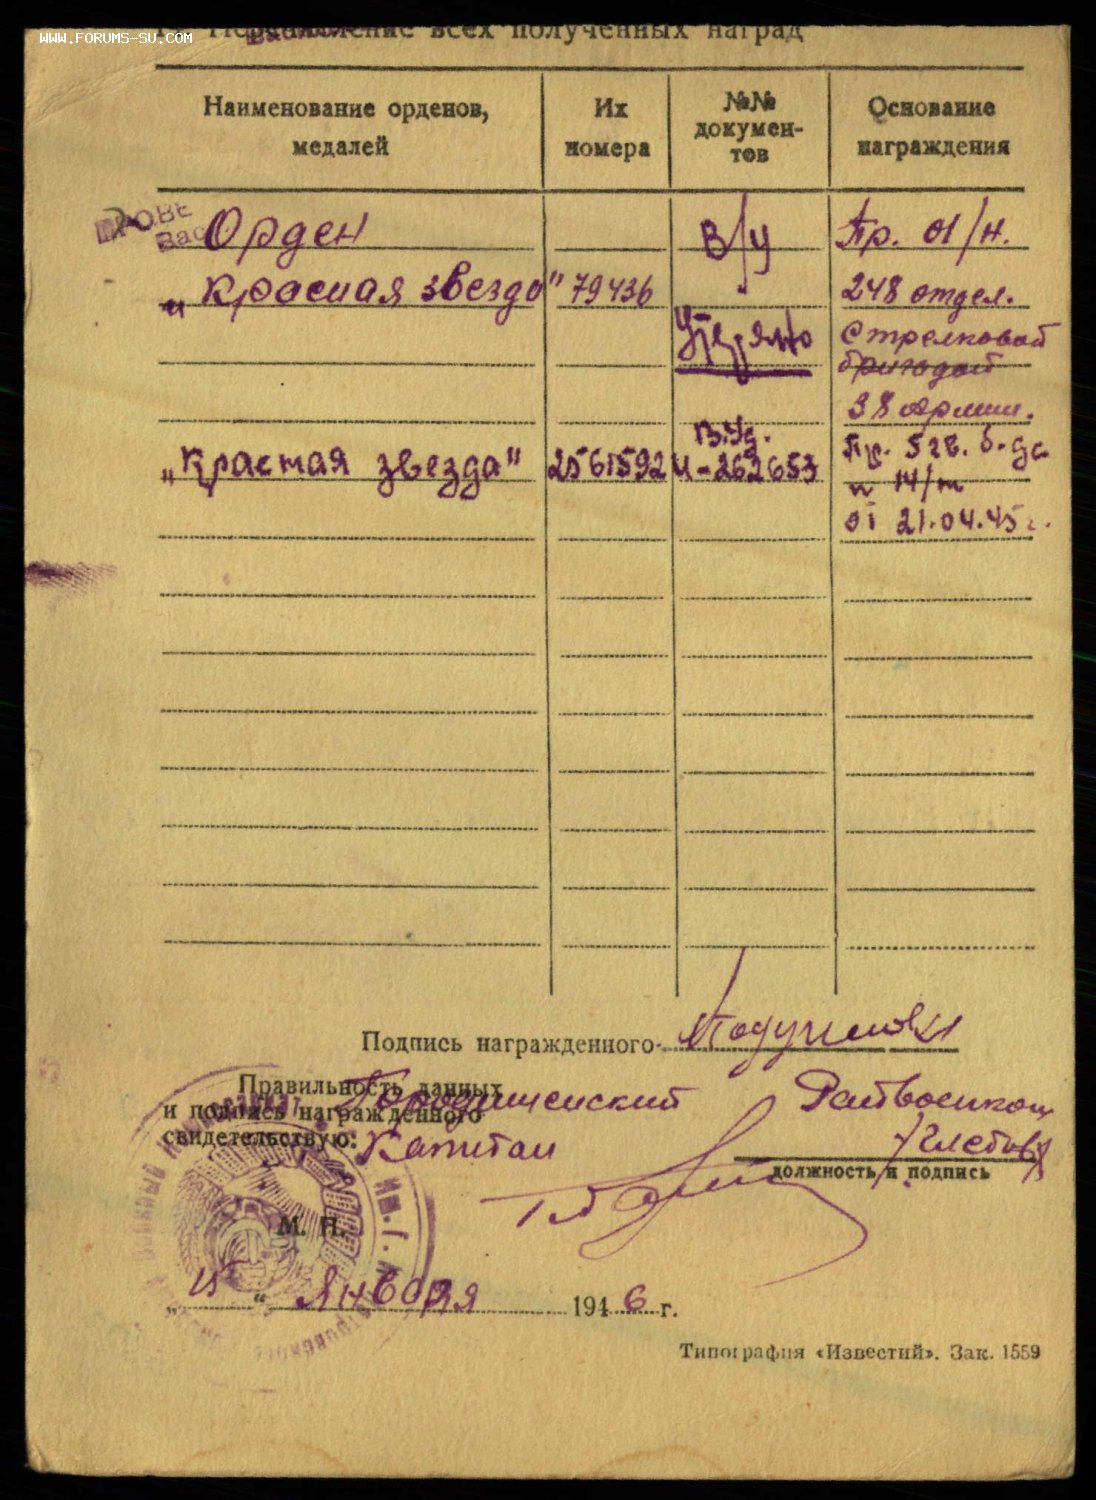 WWW.FORUMS-SU.COM
всех полученных наград
Наименование орденов, медалей
Их номера
№№ докумен-
тов
Основание награждения
ПРОВЕ
Вас
Орден
В/у
Пр. 01/н.
„Красная звезда" 79436
248 отдел.
Утеряно
Стрелковой
бригадой
38 армии.
„Красная звезда" 2561592
В.Уд.
И-262653
Пр. 5 гв. б. да
н 14/н
от 21.04.45 г.
Подпись награжденного
Правильность данных
и подпись награжденного
свидетельствую:
Городищенский Райвоенком
Капитан /Глебов/
должность и подпись
М. П.
„15“ Января 1946 г.
Типография «Известий». Зак. 1559